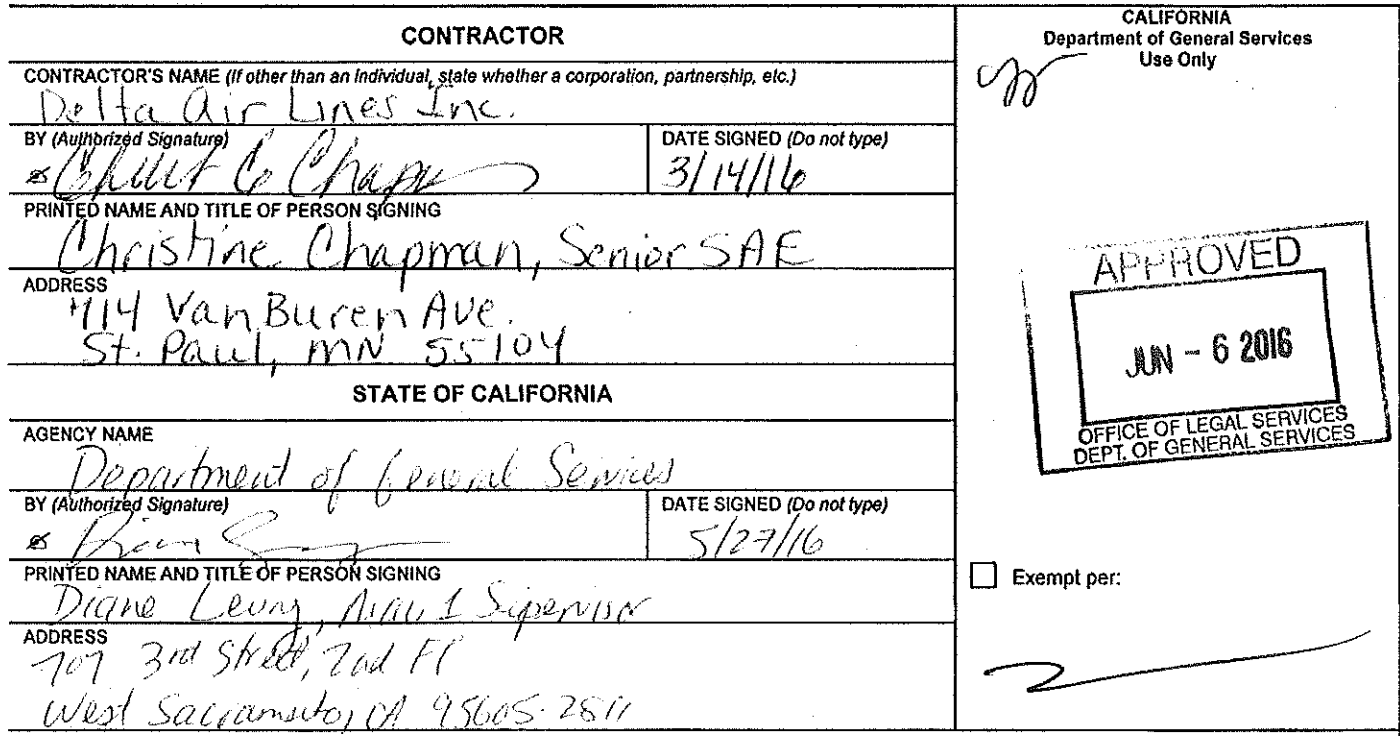 CONTRACTOR
CONTRACTOR'S NAME (If other than an individual, state whether a corporation, partnership, etc.)
Delta Air Lines Inc.
BY (Authorized Signature)
DATE SIGNED (Do not type)
3/14/16
PRINTED NAME AND TITLE OF PERSON SIGNING
Christine Chapman, Senior SAE
ADDRESS
714 Van Buren Ave.
St. Paul, MN 55104
STATE OF CALIFORNIA
AGENCY NAME
Department of General Services
BY (Authorized Signature)
DATE SIGNED (Do not type)
5/27/16
PRINTED NAME AND TITLE OF PERSON SIGNING
Diane Leung, 1 Supervisor
ADDRESS
707 3rd Street, 2nd Fl
West Sacramento, CA 95605-2811
CALIFORNIA
Department of General Services
Use Only
APPROVED
JUN - 6 2016
OFFICE OF LEGAL SERVICES
DEPT. OF GENERAL SERVICES
Exempt per: